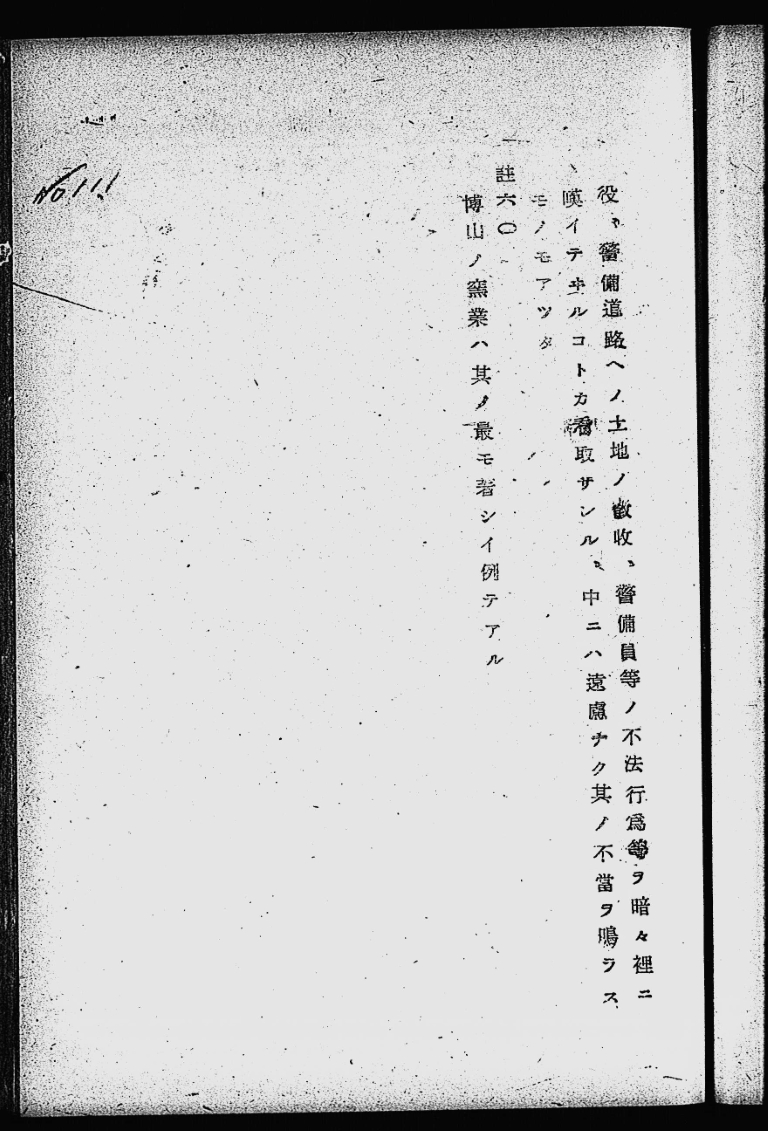 役ヤ警備道路ヘノ土地ノ徴收、警備員等ノ不法行爲等ヲ暗々裡ニ
嘆イテヰルコトカ看取サレル、中ニハ遠慮ナク其ノ不當ヲ鳴ラス
モノモアツタ
註六〇
博山ノ窯業ハ其ノ最モ著シイ例テアル
No 111